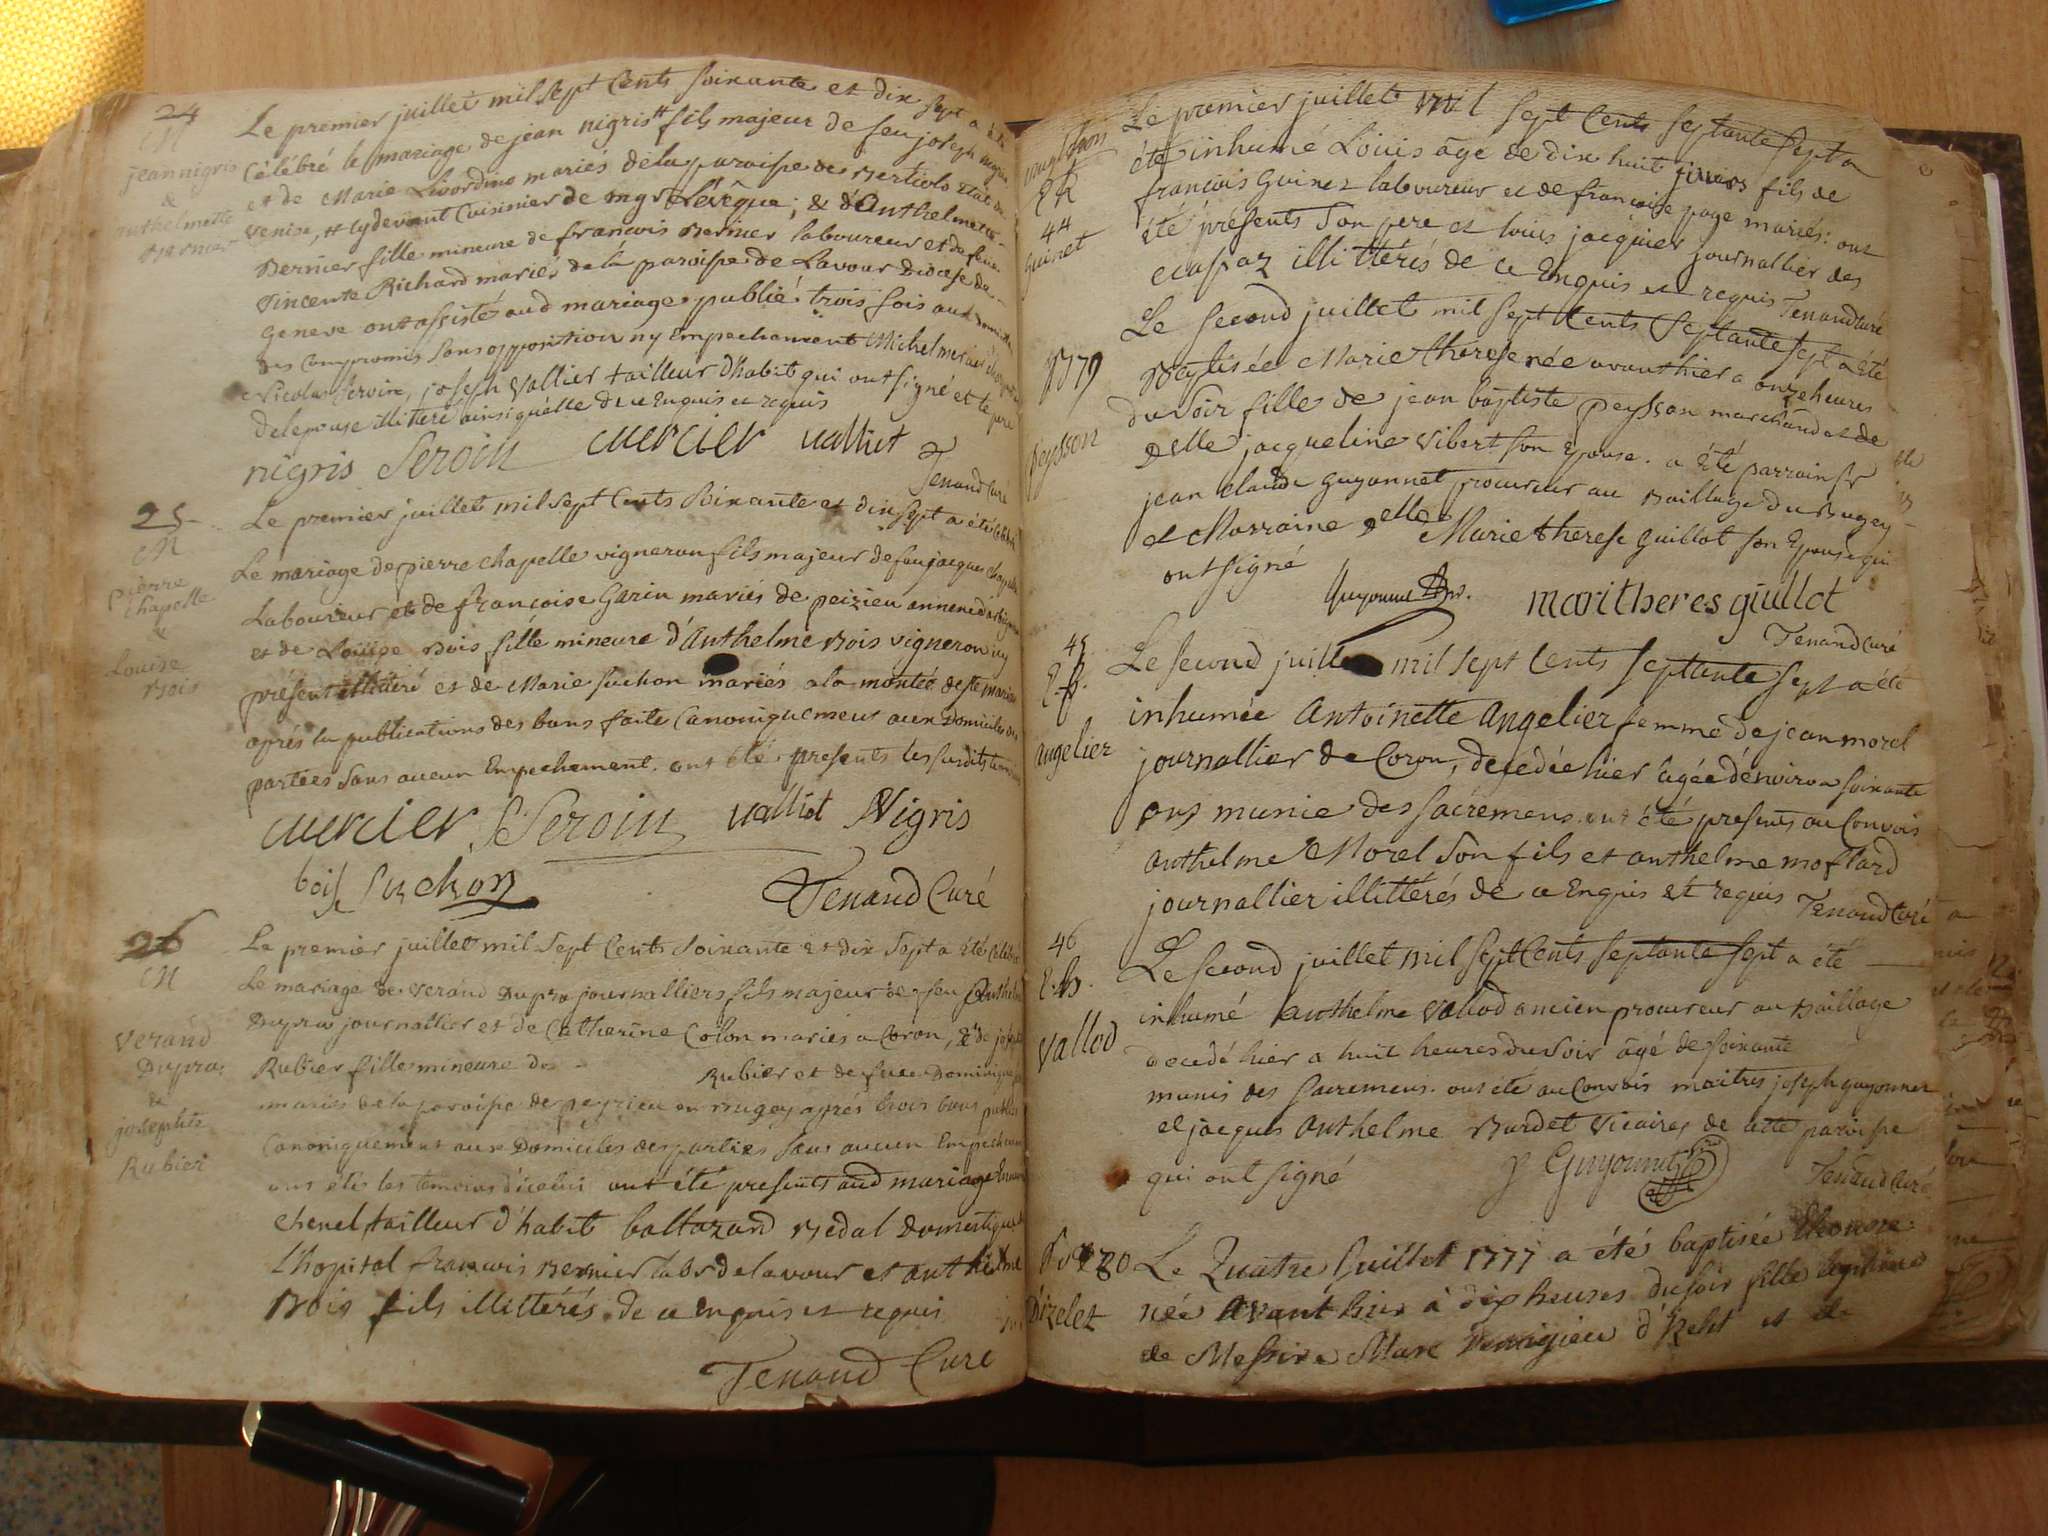 24
M
jean nigris
&
anthelmette
Bernier
Le premier juillet mil sept Cents soixante et dix sept a été
Célébré le mariage de jean nigris # fils majeur de feu joseph nigris
et de Marie mariés de la paroisse de Bertiolo Etat de
Venise, # cy devant Cuisinier de mgr L'évêque; & d'Anthelmette
Bernier fille mineure de françois Bernier laboureur et de feue
Vincente Richard mariés de la paroisse de Lavour Diocese de
Geneve ont assisté aud mariage publié trois fois aux
des Compromis sans opposition ny Empechement Michel mercier
Nicolas Seroin, joseph Vallier tailleur d'habit qui ont signé et le pere
de l'epouse illiteré ainsi qu'elle de ce Enquis et requis
nigris Seroin mercier valliet
Tenand Curé
25
M
Pierre
Chapelle
&
Louise
Bois
Le premier juillet mil sept Cents soixante et dix sept a été Célébré
Le mariage de pierre chapelle vigneron fils majeur de feu jacques chapelle
Laboureur et de françoise Garin mariés de peizieu annexe d'arbignieu
et de Louise Bois fille mineure d'Anthelme Bois vigneron icy
présent illitéré et de Marie suchon mariés a la montée de ste marie
aprés la publications des bans faite Canoniquement aux Domiciles des
parties sans aucun Empechement. ont été presents les susdits temoins
mercier Seroin valliet Nigris
bois Suchon
Tenand Curé
26
M
verand
Dupra
&
josephte
Rubier
Le premier juillet mil sept Cents soixante et dix sept a été Célébré
Le mariage de verand Dupra journalliers fils majeur de feu Anthelme
Dupra journallier et de Catherine Colon mariés a Coron, & de josephte
Rubier fille mineure de Rubier et de feue Dominique
mariés de la paroisse de peyzieu en Bugey aprés trois bans publiés
Canoniquement aux Domiciles des parties sans aucun Empechement
ont été les temoins d'icelui ont été presents aud mariage
chenel tailleur d'habit baltazard Bedal domestique de
L'hopital francois Bernier labr de lavour et anthelme
Bois fils illittérés de ce Enquis et requis
Tenand Curé
44
guinet
Le premier juillet mil sept Cents septante sept a
été inhumé Louis âgé de dix huit jours fils de
françois Guinet laboureur et de françoise page mariés: ont
été présents son pere et louis jacquier journallier des
ecassaz illittérés de ce Enquis et requis Tenand Curé
Bt 79
peysson
Le second juillet mil sept Cents septante sept a été
Baptisée Marie thérese née avant hier a onze heures
du soir fille de jean baptiste peysson marchand et de
Delle jacqueline vibert son Epouse. a été parrain sr
jean claude guyonnet procureur au Bailliage du Bugey
et Marraine Delle Marie therese guillot son Epouse qui
ont signé
Guyonnet maritheres giullot
Tenand Curé
45
E.h.
angelier
Le second juillet mil sept Cents septante sept a été
inhumée Antoinette Angelier femme de jean morel
journallier de Coron, decedée hier agée d'environ soixante
ans munie des sacremens. ont été presents au Convois
anthelme Morel son fils et anthelme mollard
journallier illittérés de ce Enquis et requis Tenand Curé
46
E.h.
vallod
Le second juillet mil sept Cents septante sept a été
inhumé Anthelme Vallod ancien procureur au Bailliage
decedé hier a huit heures du soir âgé de soixante
munis des sacremens. ont été au Convois maitres joseph guyonnet
et jacques Anthelme Burdet vicaires de cette paroisse
qui ont signé J Guyonnet
Tenand Curé
Bt 80
D'izelet
Le Quatre Juillet 1777 a été baptisée Eleonore
née avant hier à dix heures du soir fille légitime
de Messire Marc d'Izelet et de